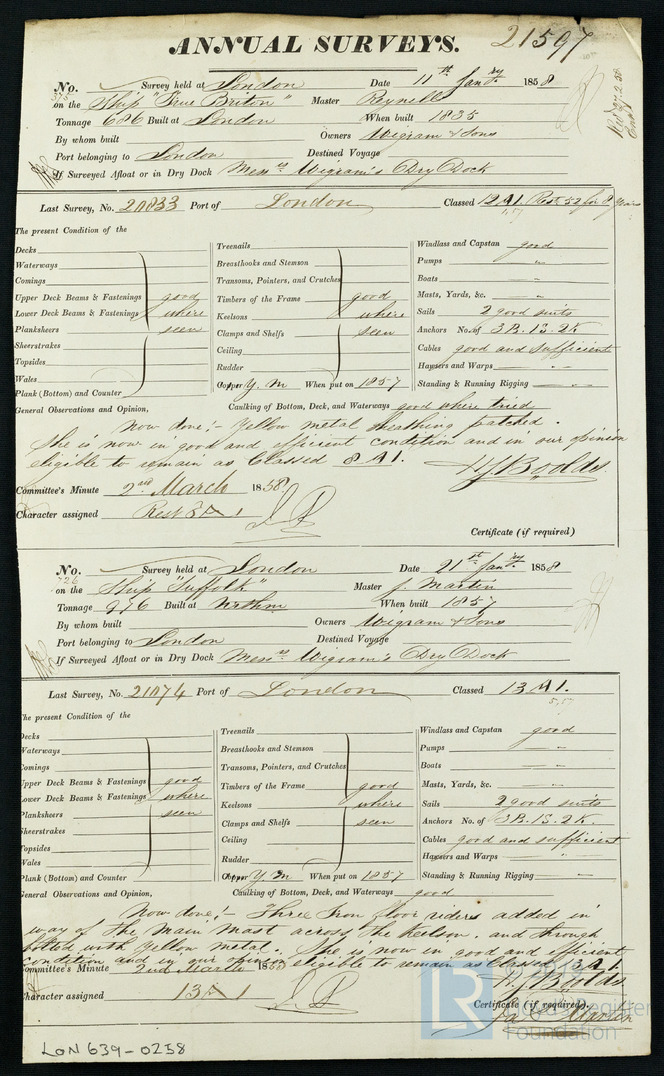 ANNUAL SURVEYS. 21597
No. Survey held at London Date 11th Jany. 1858
on the Ship "True Briton" Master Reynell
Tonnage 686 Built at London When built 1835
By whom built Owners Wigram & Sons
Port belonging to London Destined Voyage
If Surveyed Afloat or in Dry Dock Messrs Wigram's Dry Dock
Last Survey, No. 20833 Port of London Classed 12 A1. Rest. 52 for 8 years
The present Condition of the
Decks
Waterways
Comings
Upper Deck Beams & Fastenings good
Lower Deck Beams & Fastenings where
Planksheers seen
Sheerstrakes
Topsides
Wales
Plank (Bottom) and Counter
Treenails
Breasthooks and Stemson
Transoms, Pointers, and Crutches
Timbers of the Frame good
Keelsons where
Clamps and Shelfs seen
Ceiling
Rudder
Copper Y. M When put on 1857
Windlass and Capstan good
Pumps "
Boats "
Masts, Yards, &c. "
Sails 2 good suits
Anchors No. of 3B. 1S. 2K
Cables good and sufficient
Hawsers and Warps "
Standing & Running Rigging "
General Observations and Opinion, Caulking of Bottom, Deck, and Waterways good where tried
Now done:- Yellow metal sheathing patched.
She is now in good and efficient condition and in our opinion
eligible to remain as Classed 8 A1.
Committee's Minute 2nd March 1858
Character assigned Rest 8 A 1
Certificate (if required)
No. Survey held at London Date 21st Jany. 1858
726
on the Ship "Suffolk" Master J. Martin
Tonnage 976 Built at Nrthm When built 1857
By whom built Owners Wigram & Sons
Port belonging to London Destined Voyage
If Surveyed Afloat or in Dry Dock Messrs Wigram's Dry Dock
Last Survey, No. 21074 Port of London Classed 13 A1.
The present Condition of the
Decks
Waterways
Comings
Upper Deck Beams & Fastenings good
Lower Deck Beams & Fastenings where
Planksheers seen
Sheerstrakes
Topsides
Wales
Plank (Bottom) and Counter
Treenails
Breasthooks and Stemson
Transoms, Pointers, and Crutches
Timbers of the Frame good
Keelsons where
Clamps and Shelfs seen
Ceiling
Rudder
Copper Y. M When put on 1857
Windlass and Capstan good
Pumps "
Boats "
Masts, Yards, &c. "
Sails 2 good suits
Anchors No. of 3B. 1S. 2K.
Cables good and sufficient
Hawsers and Warps "
Standing & Running Rigging "
General Observations and Opinion, Caulking of Bottom, Deck, and Waterways good
Now done:- Three Iron floor riders added in
way of the main mast across the keelson, and through
bolted with yellow metal. She is now in good and efficient
condition and in our opinion eligible to remain as Classed 13 A1
Committee's Minute 2nd March 1858
Character assigned 13 A 1
Certificate (if required).
LR
Lloyd's Register
Foundation
LON 639-0258